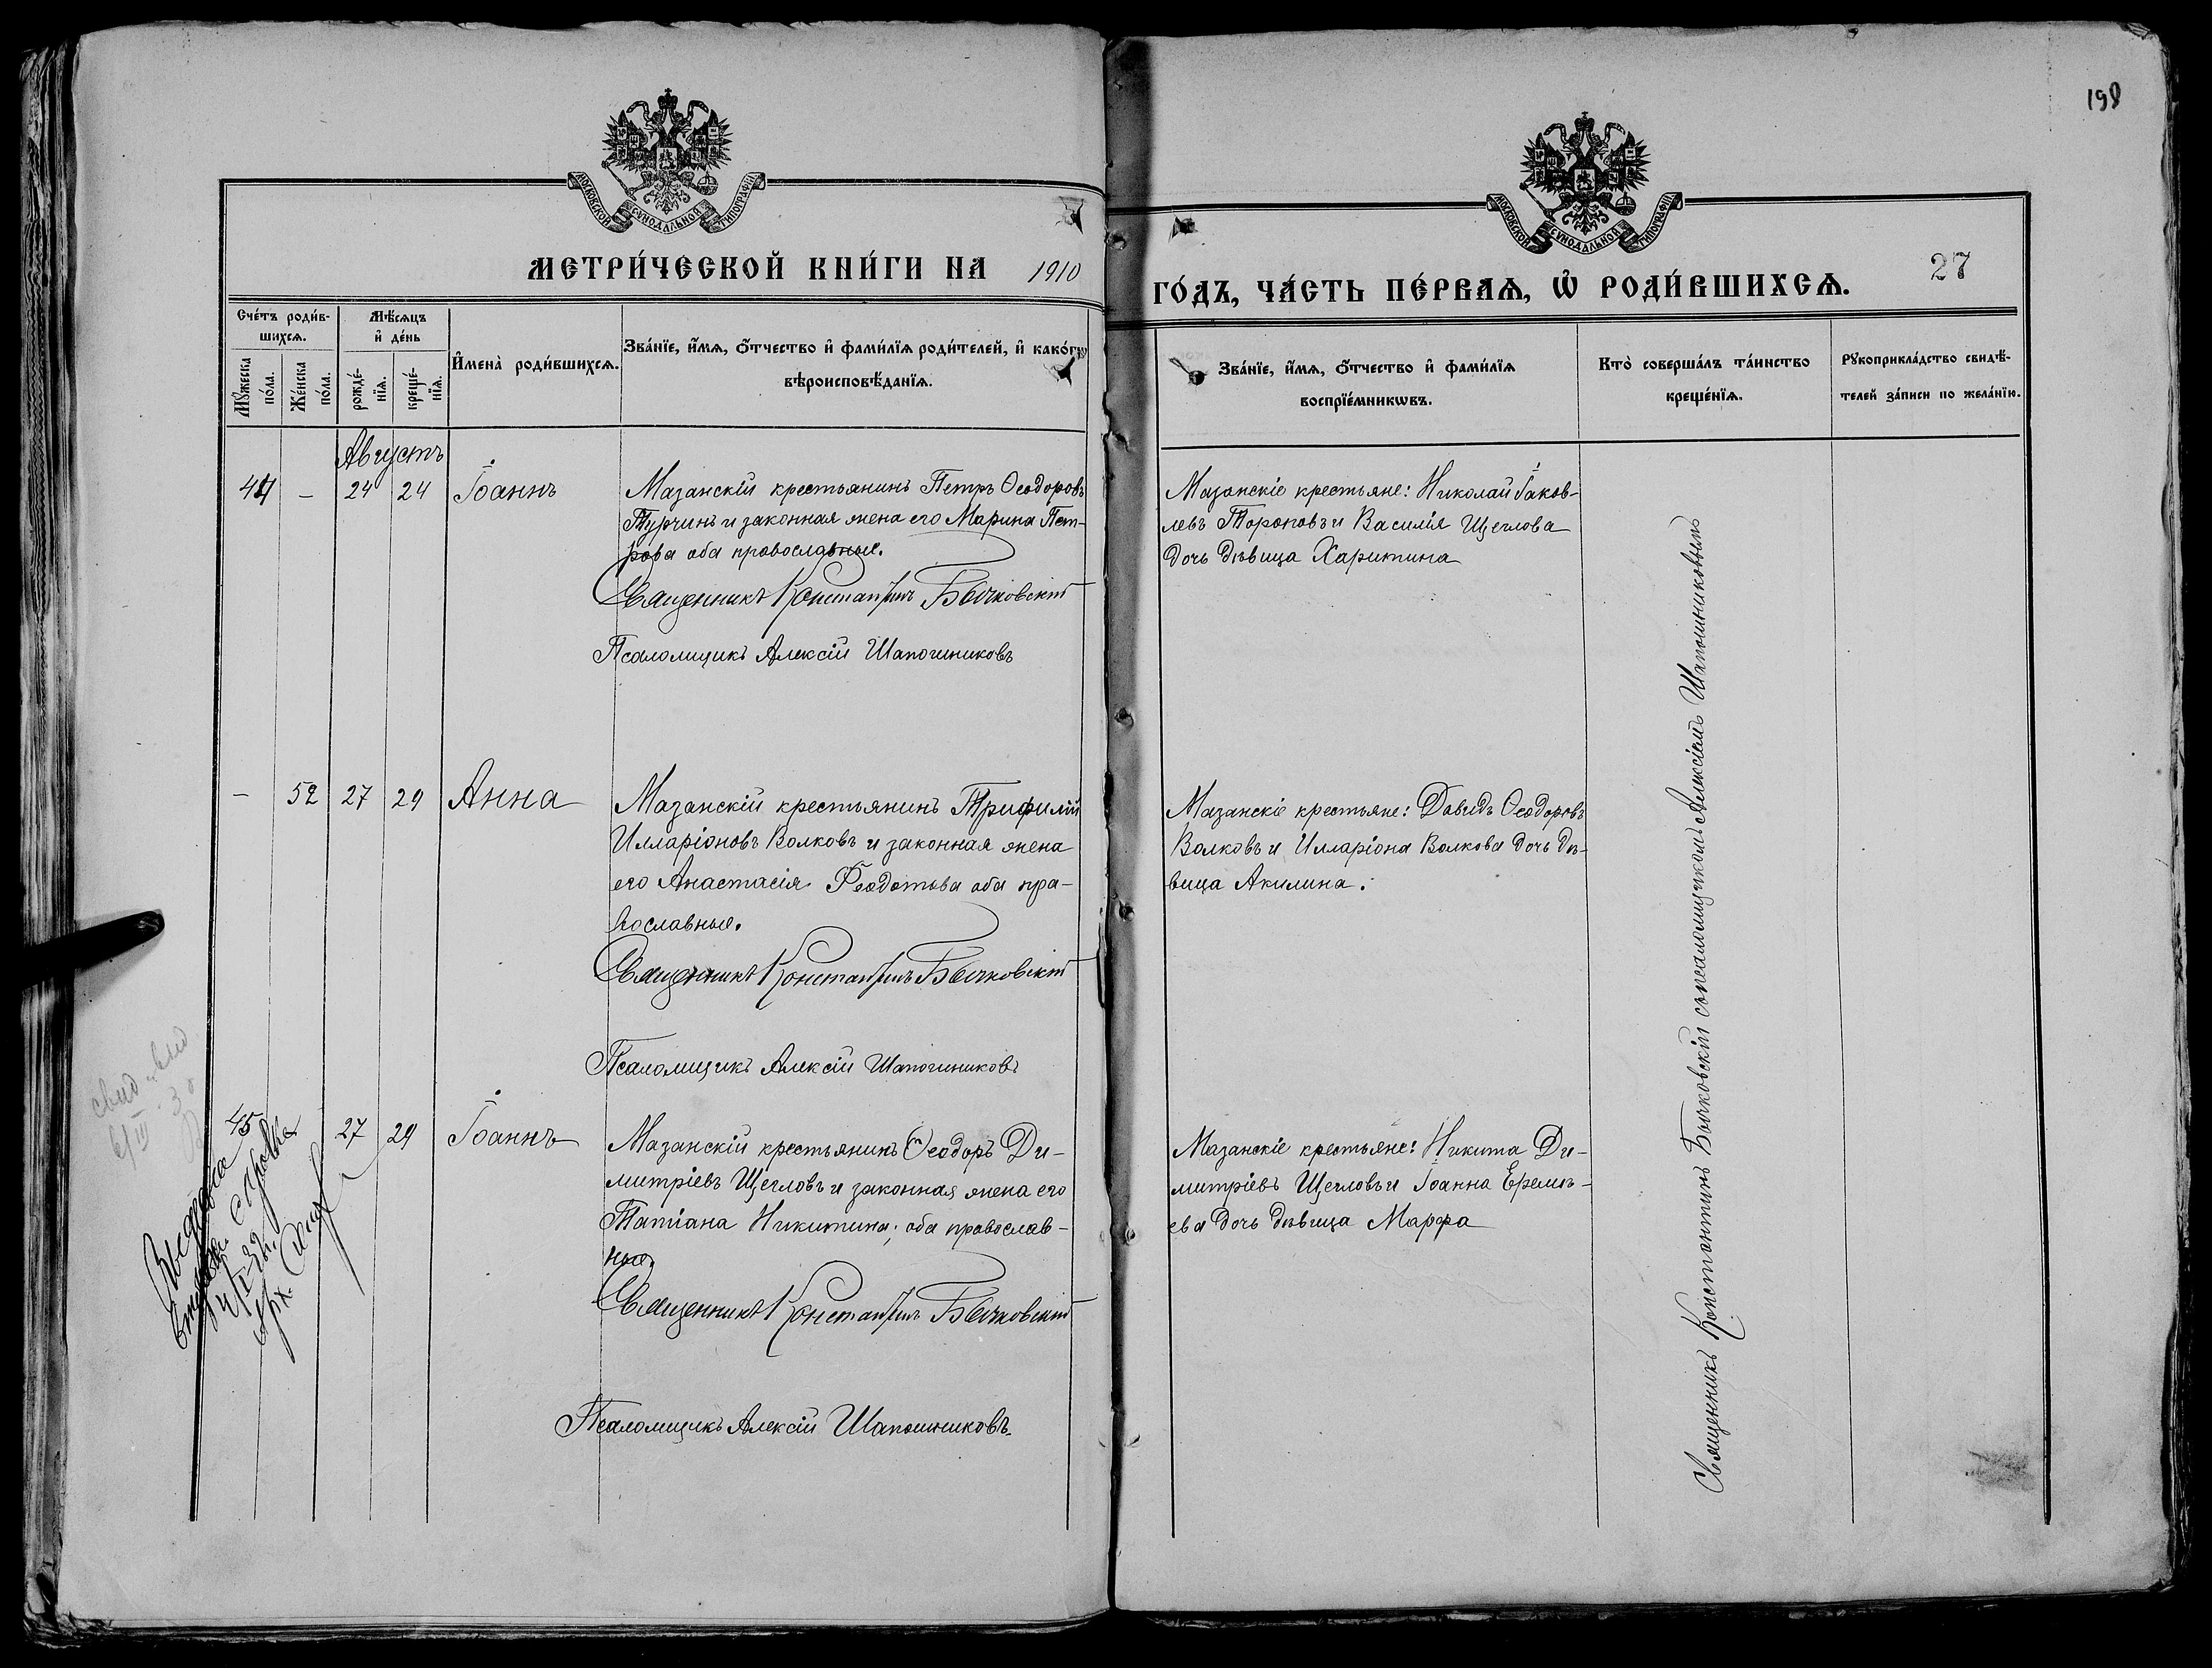 198
МОСКОВСКОЙ СѴНОДАЛЬНОЙ ТИПОГРАФІИ
МОСКОВСКОЙ СѴНОДАЛЬНОЙ ТИПОГРАФІИ
МЕТРИ́ЧЕСКОЙ КНИ́ГИ НА 1910
ГО́ДЪ, ЧА́СТЬ ПЕ́РВАѦ, Ѡ҆ РОДИ́ВШИХСѦ.
27
Сче́тъ роди́в-
шихсѧ.
Мꙋ́жеска
по́ла.
Же́нска
по́ла.
Мѣ́сѧцъ
и҆ де́нь
рожде́-
нїѧ.
креще́-
нїѧ.
И҆мена̀ роди́вшихсѧ.
Зва́нїе, и҆́мѧ, ѻ҆́тчество и҆ фами́лїѧ роди́телей, и҆ како́гѡ
вѣроисповѣ́данїѧ.
Зва́нїе, и҆́мѧ, ѻ҆́тчество и҆ фами́лїѧ
воспрїе́мникѡвъ.
Кто̀ соверша́лъ та́инство
креще́нїѧ.
Рꙋкоприкла́дство свидѣ́-
телей за́писи по жела́нїю.
Августъ
44 – 24 24 Іоаннъ
Мазанскій крестьянинъ Петръ Ѳеодоровъ
Турчинъ и законная жена его Марина Пет-
рова оба православные.
Священникъ Константинъ Бычковскій
Псаломщикъ Алексій Шапошниковъ
Мазанскіе крестьяне: Николай Іаков-
левъ Тороповъ и Василія Щеглова
дочь дѣвица Харитина
– 52 27 29 Анна
Мазанскій крестьянинъ Трифилій
Илларіоновъ Волковъ и законная жена
его Анастасія Феодотова оба пра-
вославные.
Священникъ Константинъ Бычковскій
Псаломщикъ Алексій Шапошниковъ
Мазанскіе крестьяне: Давидъ Ѳеодоровъ
Волковъ и Илларіона Волкова дочь дѣ-
вица Акилина.
45 27 29 Іоаннъ
Мазанскій крестьянинъ Ѳеодоръ Ди-
митріевъ Щегловъ и законная жена его
Татіана Никитина; оба православ-
ные.
Священникъ Константинъ Бычковскій
Псаломщикъ Алексій Шапошниковъ.
Мазанскіе крестьяне: Никита Ди-
митріевъ Щегловъ и Іоанна Еремѣ-
ева дочь дѣвица Марфа
Священникъ Константинъ Бычковскій съ псаломщикомъ Алексіемъ Шапошниковымъ